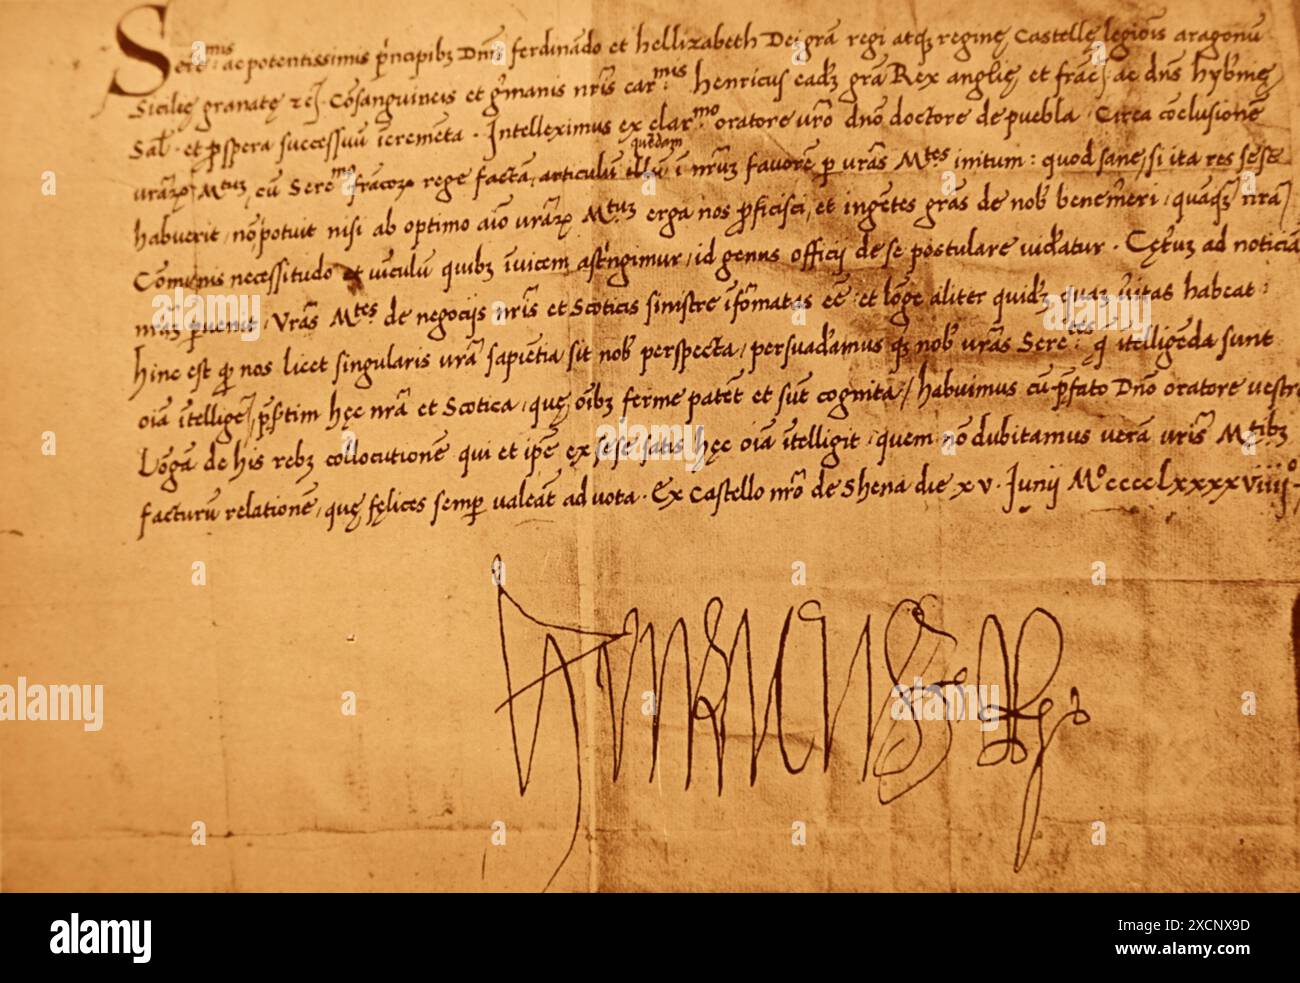 Sere.mis ac potentissimis p̄ncipibꝫ Dn̄is ferdinādo et hellizabeth Dei grā regi atqꝫ reginę Castellę legiōis aragonū
Sicilię granatę ꝛcꝭ. Cōsanguineis et ḡmanis nr̄is car.mis henricus eadꝫ grā Rex anglię et frāc̄ ac dn̄s hyb̄nię
Sal̄. et ꝓspera successuū īcremēta. Intelleximus ex clar.mo oratore vr̄o dn̄o doctore de puebla. Circa cōclusionē
vrāꝝ Mtuꝫ, cū Sere.mo frācoꝝ rege factā, articulū quēdam ī nr̄uꝫ favorē ꝑ vrās Mtes initum: quod sane, si ita res sese
habuerit, nō potuit nisi ab optimo aīo vrāꝝ Mtuꝫ erga nos ꝓficisci, et ingētes grās de nob̄ benem̄eri, quāqꝫ nrā
Cōmunis necessitudo et vīculū quibꝫ īuicem astr̄ngimur, id genus officij de se postulare videatur. Cęt̄uꝫ ad noticiā
nrāꝫ ꝑuenit, Vrās Mtes de negocijs nr̄is et Scoticis sinistre īfōmatas eē et lōge aliter quidꝫ quaꝫ v̄itas habeat:
hinc est ꝙ nos licet singularis vrā sapiētia sit nob̄ perspecta, persuadamus qꝫ nob̄ vrās Sere.tes q̄ ītelligēda sunt
oīa ītelligē, p̄sertim hęc nrā et Scotica, quę oībꝫ ferme patēt et sūt cognita, habuimus cū p̄fato Dn̄o oratore vestro
Lōgā de his rebꝫ collocutionē qui et ip̄e ex sese satis hęc oīa ītelligit, quem nō dubitamus verā vr̄is Mtibꝫ
facturum relationē, quę fęlices semꝑ valeāt ad vota. Ex Castello nr̄o de Shena die xv. Junij Mo ccccLxxxxviiijo.
alamy
Image ID: 2XCNX9D
www.alamy.com